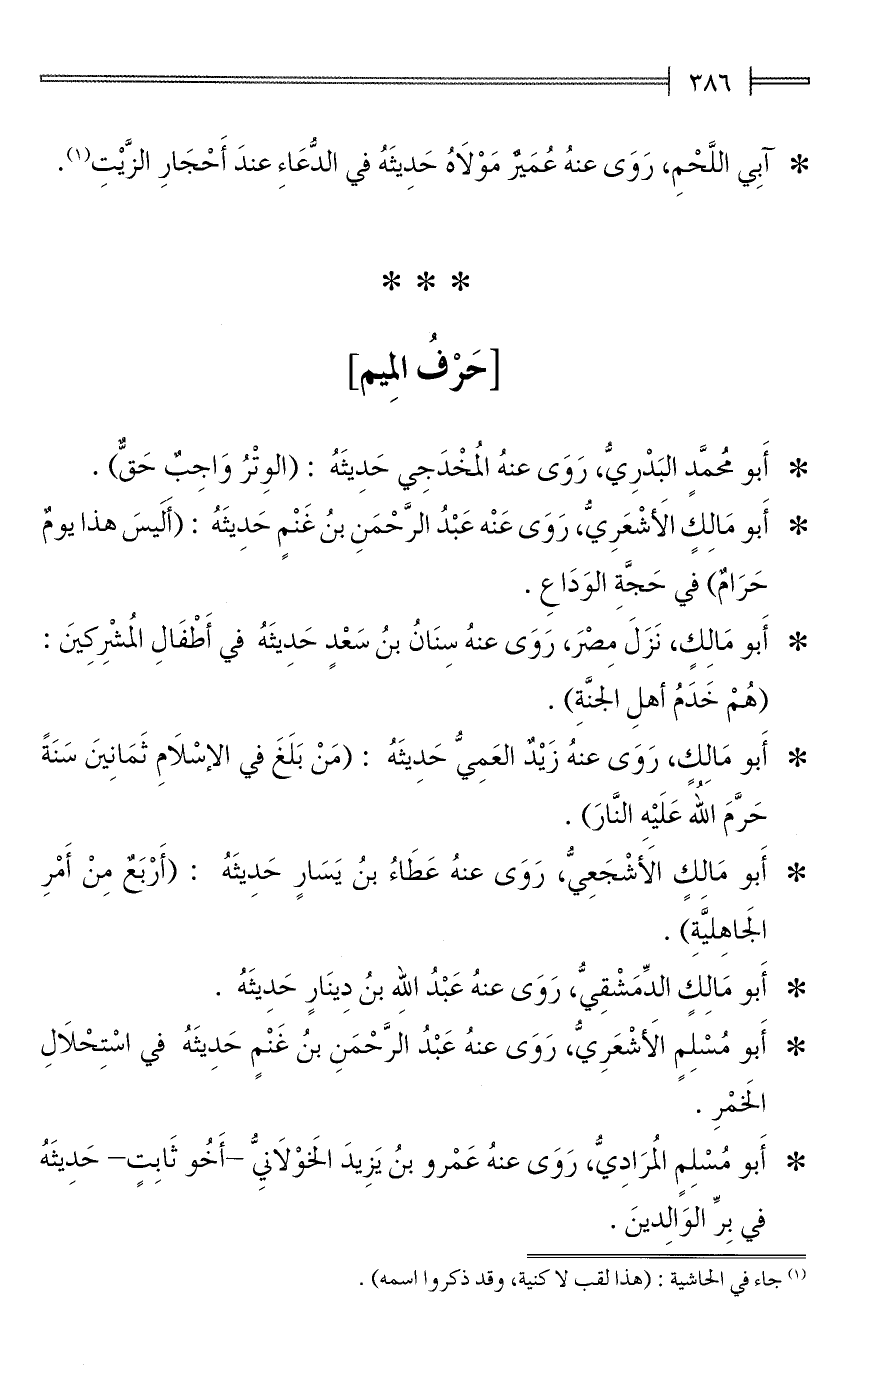 ٣٨٦
* آبِي اللَّحْمِ، رَوَى عنهُ عُمَيرٌ مَوْلَاهُ حَدِيثَهُ في الدُّعَاءِ عندَ أَحْجَارِ الزَّيْتِ(١).
* * *
[حَرْفُ المِيم]
* أَبو مُحمَّدٍ البَدْرِيُّ، رَوَى عنهُ المُخْدَجِي حَدِيثَهُ : (الوِتْرُ وَاجِبٌ حَقٌّ) .
* أَبو مَالِكٍ الأَشْعَرِيُّ، رَوَى عَنْه عَبْدُ الرَّحْمَنِ بنُ غَنْمٍ حَدِيثَهُ : (أَلَيسَ هذا يومٌ
حَرَامٌ) في حَجَّةِ الوَدَاعِ .
* أَبو مَالِكٍ، نَزَلَ مِصْرَ، رَوَى عنهُ سِنَانُ بنُ سَعْدٍ حَدِيثَهُ في أَطْفَالِ المُشْرِكينَ :
(هُمْ خَدَمُ أهلِ الجنَّةِ) .
* أَبو مَالِكٍ، رَوَى عنهُ زَيْدٌ العَمِيُّ حَدِيثَهُ : (مَنْ بَلَغَ في الإسْلَامِ ثَمَانِينَ سَنَةً
حَرَّمَ اللهُ عَلَيْهِ النَّارَ) .
* أَبو مَالِكٍ الأَشْجَعِيُّ، رَوَى عنهُ عَطَاءُ بنُ يَسَارٍ حَدِيثَهُ : (أَرْبَعٌ مِنْ أَمْرِ
الجَاهِلِيَّةِ) .
* أَبو مَالِكٍ الدِّمَشْقِيُّ، رَوَى عنهُ عَبْدُ اللهِ بنُ دِينَارٍ حَدِيثَهُ .
* أَبو مُسْلِمٍ الأَشْعَرِيُّ، رَوَى عنهُ عَبْدُ الرَّحْمَنِ بنُ غَنْمٍ حَدِيثَهُ في اسْتِحْلَالِ
الخَمْرِ .
* أَبو مُسْلِمٍ المُرَادِيُّ، رَوَى عنهُ عَمْرو بنُ يَزِيدَ الخَوْلَانيُّ –أَخُو ثَابِتٍ– حَدِيثَهُ
في بِرِّ الوَالِدينَ .
(١) جاء في الحاشية : (هذا لقب لا كنية، وقد ذكروا اسمه) .